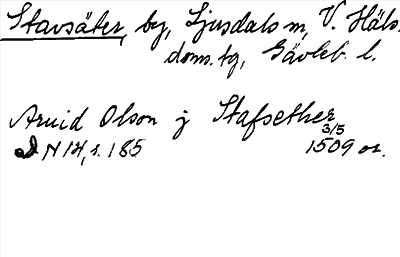 Stavsäter, by, Ljusdals sn, V. Häls.
doms. tg, Gävleb. l.
Arvid Olson j Stafsether
3/5
N 14, s. 185 1509 or.